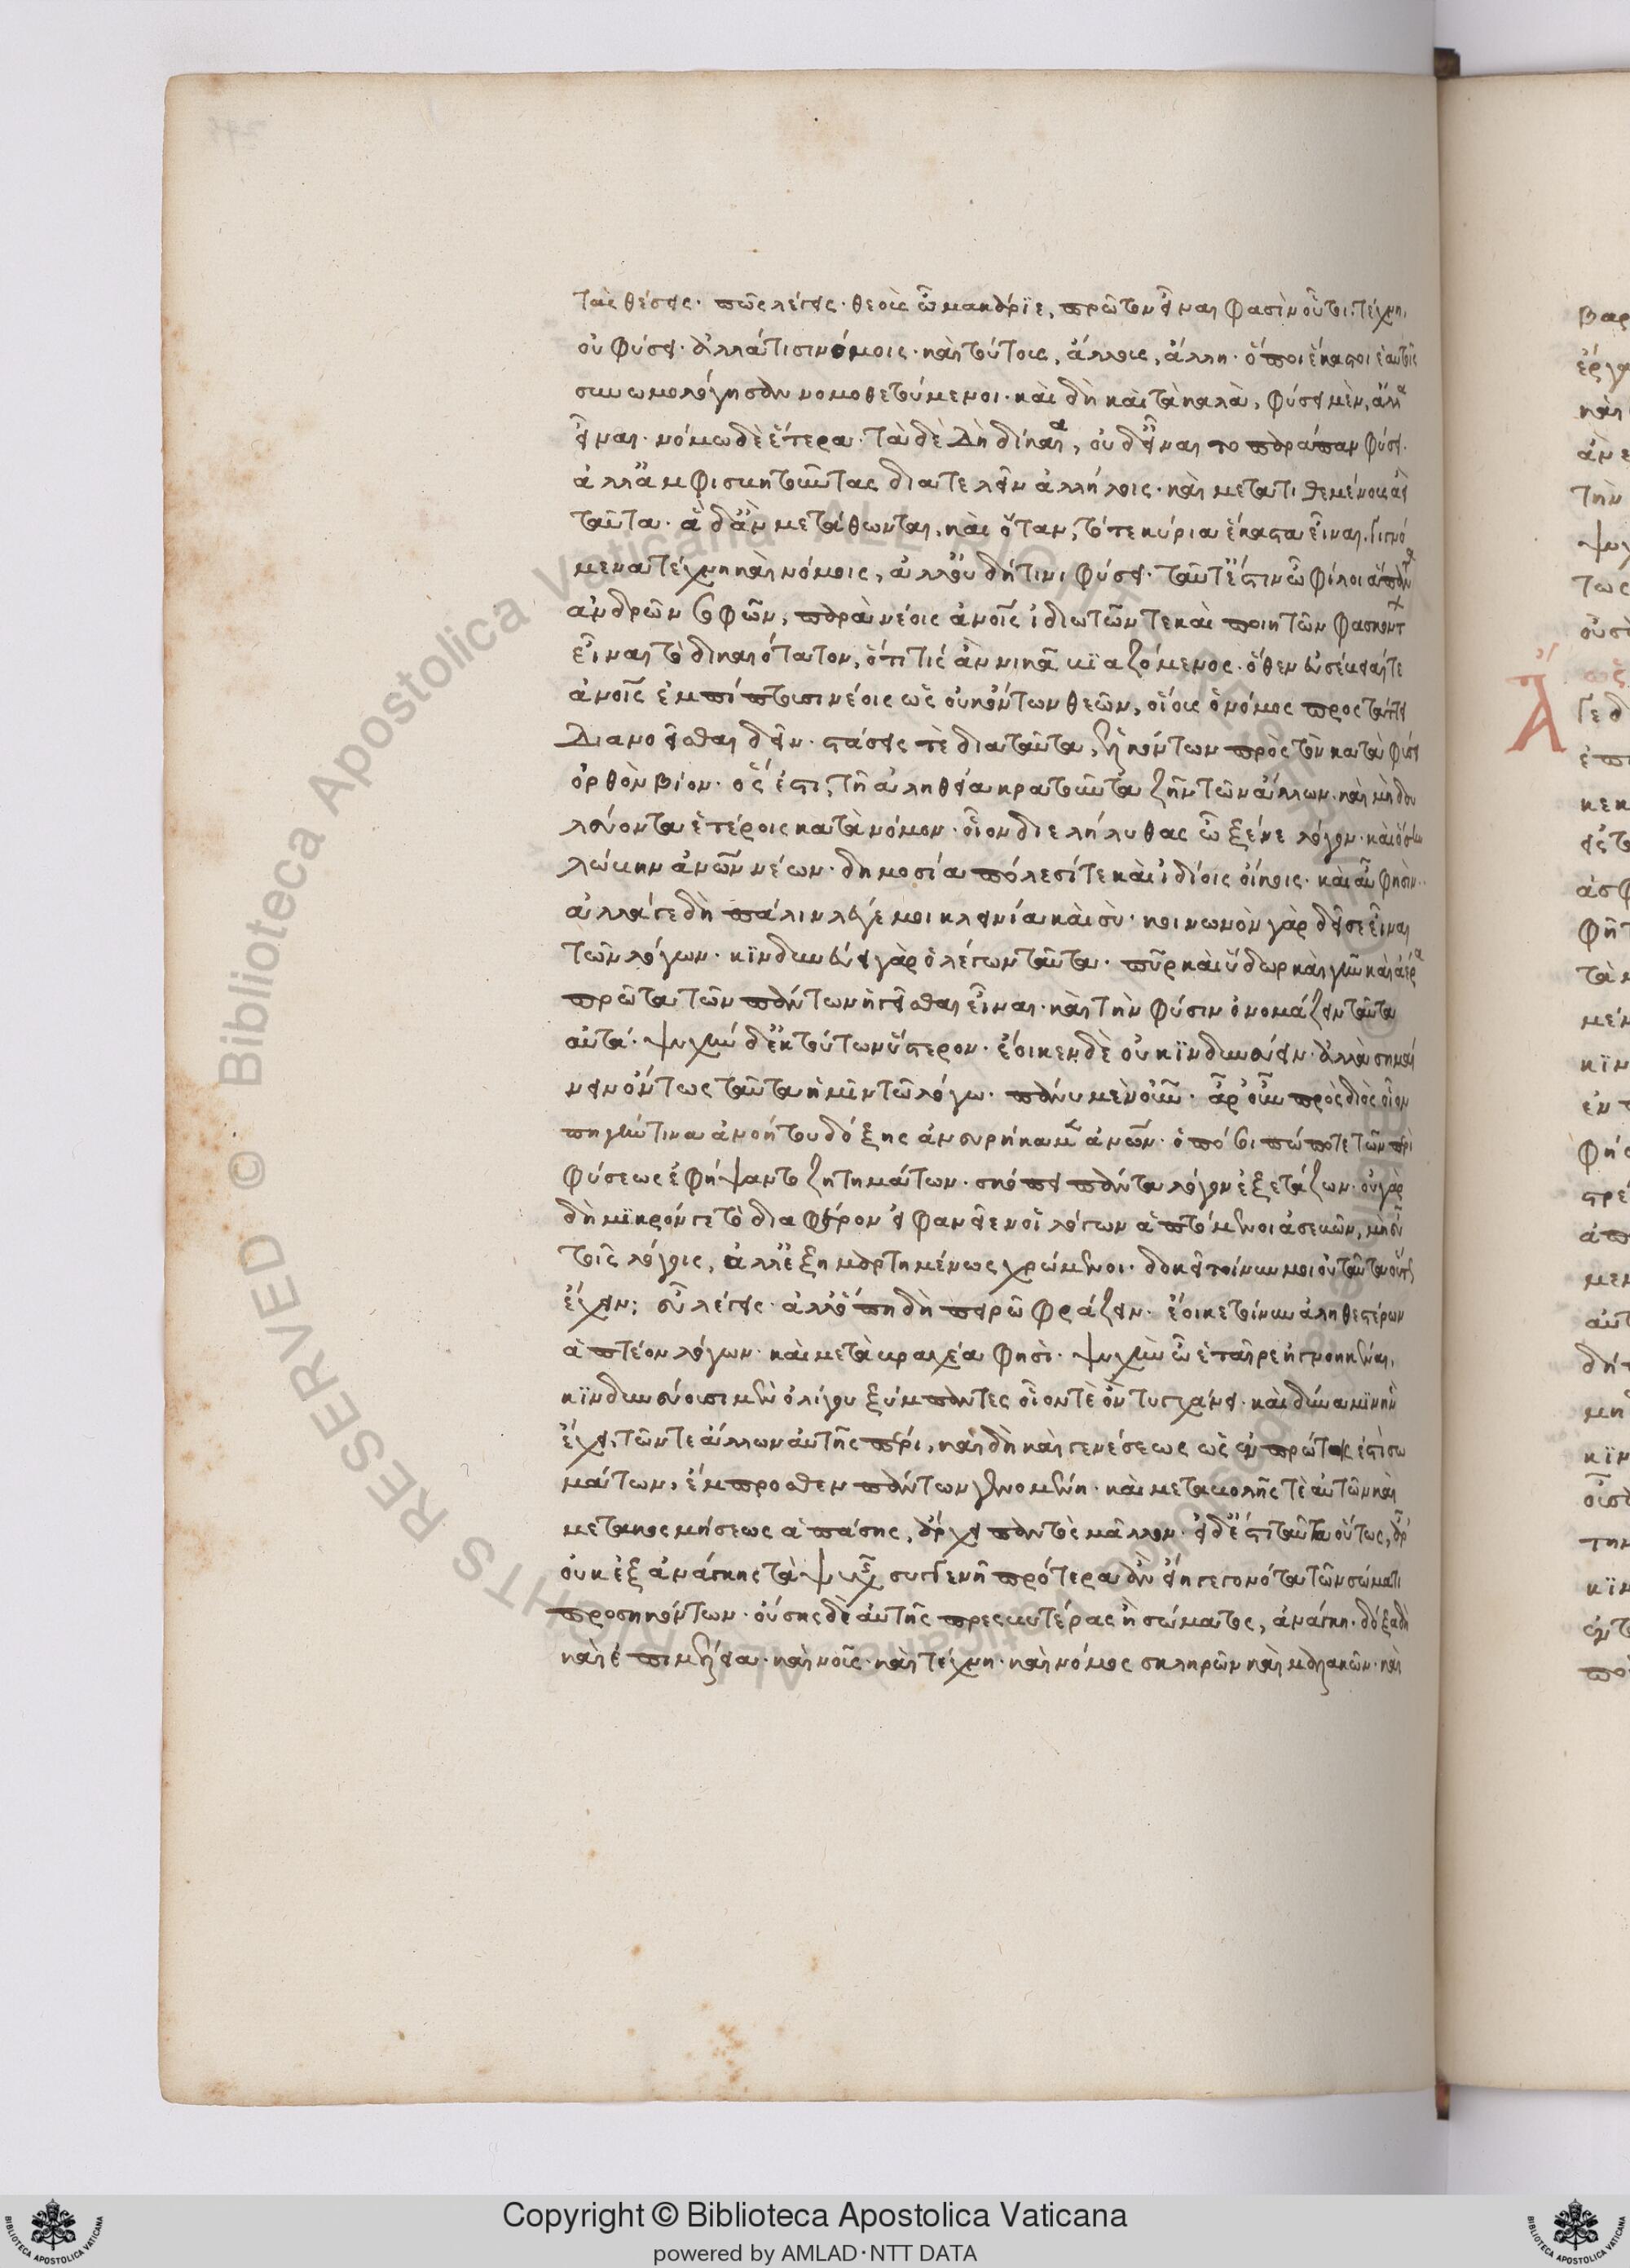 τὰς θέσεις· πῶς λέγεις· θεοὺς ὦ μακάριε, πρῶτον εἶναι φασὶν οὗτοι τέχνῃ,
οὐ φύσει· ἀλλά τισι νόμοις· καὶ τούτοις, ἄλλοις, ἄλλῃ· ὅποι ἕκαστοι ἑαυτοῖς
συνωμολόγησαν νομοθετούμενοι· καὶ δὴ καὶ τὰ καλὰ, φύσει μὲν, ἄλλα
εἶναι· νόμω δὲ ἕτερα· τὰ δὲ δὴ δίκαια, οὐδ' εἶναι το παράπαν φύσει·
ἀλλ' ἀμφισβητοῦντας διατελεῖν ἀλλήλοις· καὶ μετατιθεμένους ἀεὶ
ταῦτα· ἃ δ' ἂν μετάθωνται, καὶ ὅταν, τότε κύρια ἕκαστα εἶναι. γιγνό
μενα τέχνη καὶ νόμοις, ἀλλ' οὐ δή τινι φύσει· ταῦτ' ἔστιν ὦ φίλοι ἅπαντα
ανδρῶν σοφῶν, παρὰ νέοις ἀνοῖς ἰδιωτῶν τε καὶ ποιητῶν φασκοντ
εἶναι τὸ δικαιότατον, ὅτι τίς ἂν νικᾶ βϊαζόμενος· ὅθεν ἀσέβειαί τε
ἀνοῖς ἐμπίπτουσι νέοις ὡς οὐκ ὄντων θεῶν, οἵους ὁ νόμος προστάττει
διανοεῖσθαι δεῖν· στάσεις τὲ διὰ ταῦτα, ἑλκόντων πρὸς τὸν κατὰ φύσιν
ὀρθὸν βίον· ὅς ἐστι, τῆ ἀληθεία κρατοῦντα ζῆν τῶν ἄλλων· καὶ μὴ δου
λεύοντα ἑτέροις κατὰ νόμον· οἷον διελήλυθας ὦ ξένε λόγον· καὶ ὅσην
λώβην ἀνων νέων· δημοσία πόλεσί τε καὶ ἰδίοις οἴκοις· καὶ αὖ φησὶν·
ἀλλά γε δὴ πάλιν λέγε μοι κλεινία καὶ σὺ· κοινωνὸν γὰρ δεῖ σε εἶναι
τῶν λόγων· κϊνδυνεύει γὰρ ὁ λέγων ταῦτα· πῦρ καὶ ὕδωρ καὶ γῆν καὶ ἀέρα
πρῶτα τῶν πάντων ἡγεῖσθαι εἶναι· καὶ τὴν φύσιν ὀνομάζειν ταῦτα
αὐτά· ψυχὴν δ' ἐκ τούτων ὕστερον· ἔοικεν δὲ οὐ κϊνδυνεύειν· ἀλλὰ σημαί
νειν ὄντως ταῦτα ἡμῖν τῶ λόγω· πάνυ μὲν οὖν· ἆρ' οὖν πρὸς διὸς οἷον
πηγήν τινα ἀνοήτου δόξης ἀνευρήκαμεν ἀνων· ὁπόσοι πώποτε τῶν περὶ
φύσεως ἐφήψαντο ζητημάτων· σκόπει πάντα λόγον ἐξετάζων· οὐ γὰρ
δὴ μϊκρόν γε τὸ διαφέρον εἰ φανεῖεν οἱ λόγων ἁπτόμενοι ἀσεβῶν, μηδ' εὖ
τοῖς λόγοις, ἀλλ' ἐξημαρτημένως χρώμενοι· δοκεῖ τοίνυν μοι οὐ ταῦτα οὕτως
ἔχειν; εὖ λέγεις· ἀλλ' ὅπη δὴ πειρῶ φράζειν· ἔοικε τοίνυν ἀληθεστέρων
ἁπτέον λόγων· καὶ μετὰ βραχέα φησὶ· ψυχὴν ὦ ἑταῖρε ἠγνοηκέναι,
κϊνδυνεύουσι μὲν ὀλίγου ξύμπαντες οἷόν τὲ ὂν τυγχάνει· καὶ δύναμϊν ἣν
ἔχει, τῶν τε ἄλλων αὐτῆς πέρι, καὶ δὴ καὶ γενέσεως ὡς ἐν πρώτοις ἐστὶ σω
μάτων, ἔμπροσθεν πάντων γενομένη· καὶ μεταβολῆς τὲ αὐτῶν καὶ
μετακοσμήσεως ἁπάσης, ἄρχει παντὸς μᾶλλον· εἰ δ' ἔστι ταῦτα οὕτως, ἆρ'
οὐκ ἐξ ἀνάγκης τὰ ψυχῆς συγγενῆ πρότερα ἂν εἴη γεγονότα τῶν σώματι
προσηκόντων· οὔσης δὲ αὐτῆς πρεσβυτέρας ἢ σώματος, ἀνάγκη· δόξα δὴ
καὶ ἐπιμέλεια· καὶ νοῦς· καὶ τέχνη· καὶ νόμος σκληρῶν καὶ μαλακῶν· καὶ
Biblioteca Apostolica Vaticana
ALL RIGHTS RESERVED ©
Copyright © Biblioteca Apostolica Vaticana
powered by AMLAD·NTT DATA
BIBLIOTECA APOSTOLICA VATICANA
BIBLIOTECA APOSTOLICA VATICANA